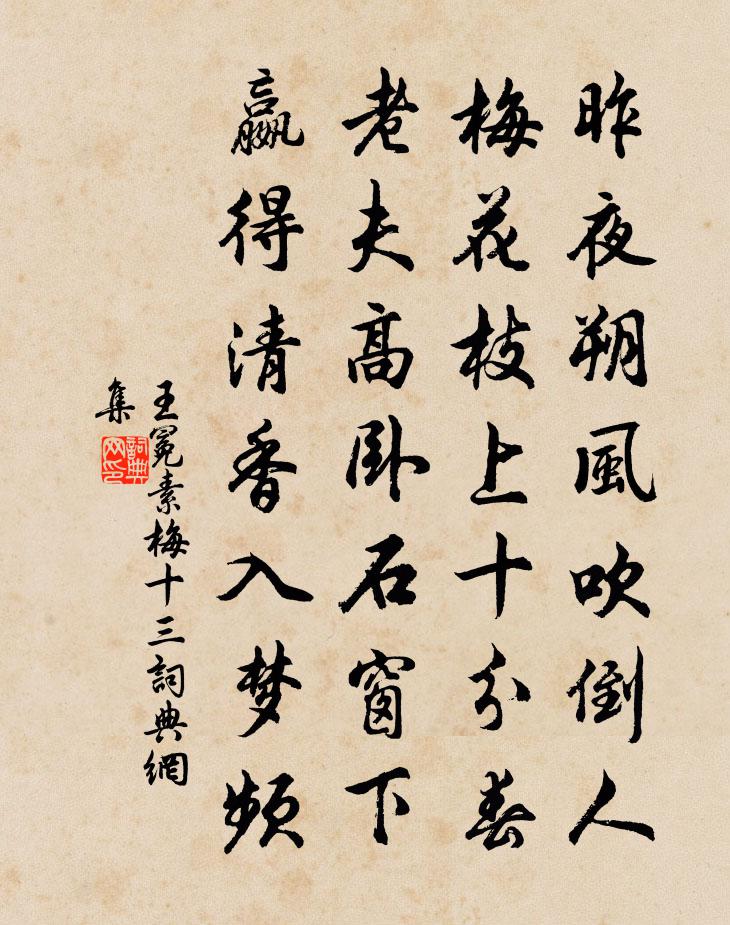 昨夜朔風吹倒人
梅花枝上十分春
老夫高卧石窗下
赢得清香入梦频
王冕素梅十三詞典網
集
詞典
网印